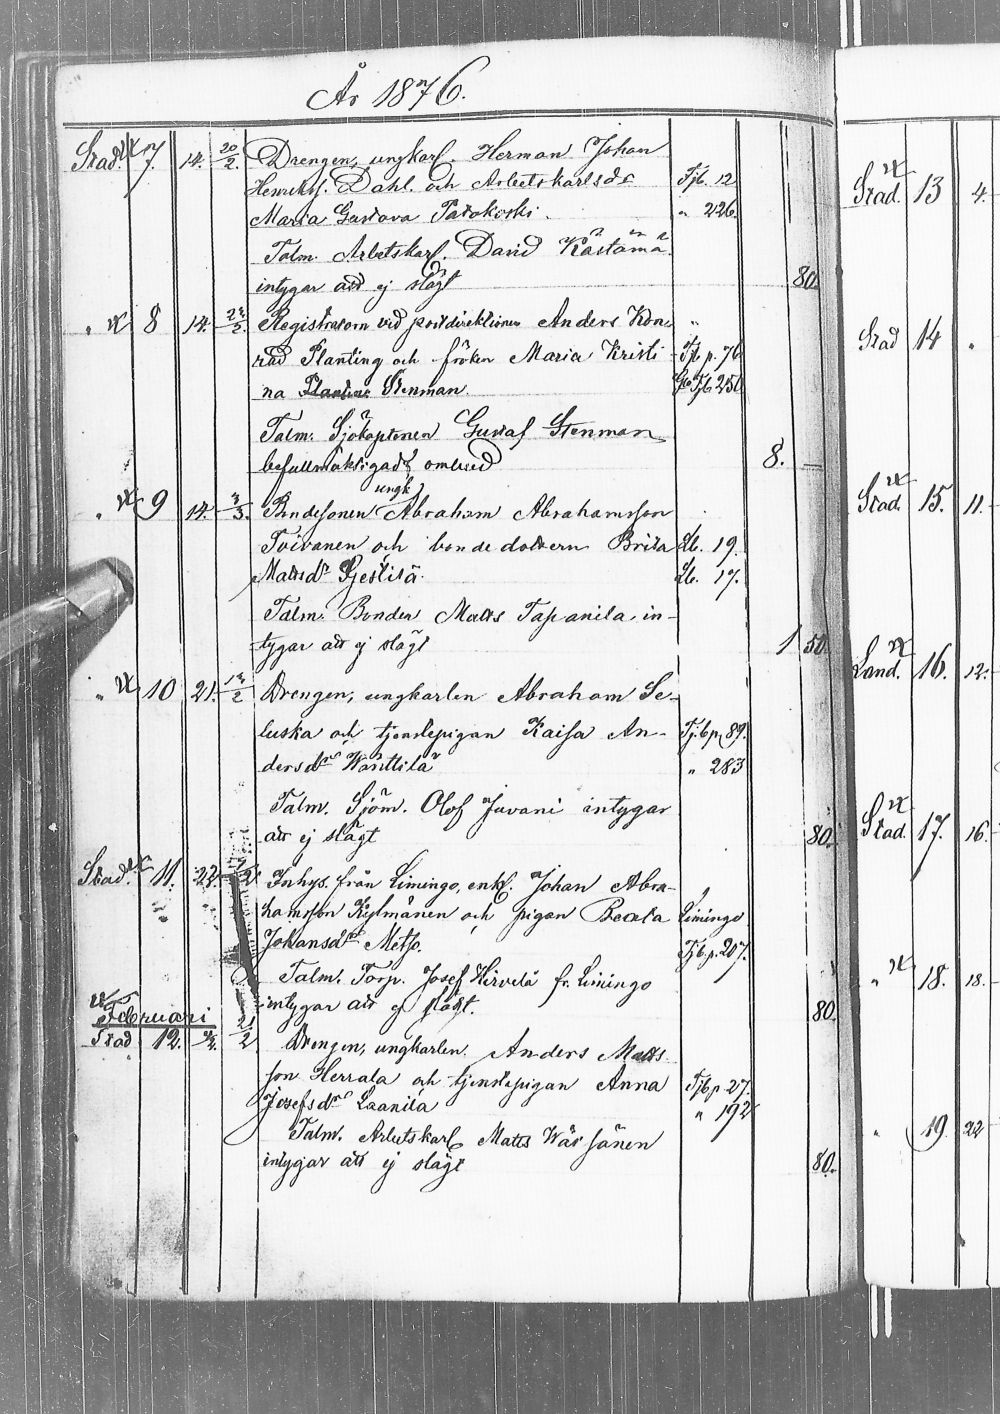 År 1876.
Stad. 7 14. 20/2. Drengen, ungkarl. Herman Johan
Henrikss. Dahl och Arbetskarlsdr Tjb. 12
Maria Gustava Patokoski. " 226.
Talm. Arbetskarl. David Kästämä
intygar att ej slägt 80.
" 8 14. Registratorn vid postdirektionen Anders Kon-
rad Planting och fröken Maria Kristi Tjb p. 76
na Stenman. Tjb 250
Talm. Sjökaptenen Gustaf Stenman
befullmäktigadt ombud 8. —
ungk.
" 9 14. 3/3. Bondesonen Abraham Abrahamsson
Toivanen och bondedottern Brita Lb. 19.
Mattsdr Lb. 17.
Talm. Bonden Matts Tapanila in-
tygar att ej slägt 1 50.
" 10 21. Drengen, ungkarlen Abraham Se-
luska och tjenstepigan Kaisa An- Tj.b p. 89.
dersdr Wänttilä " 283
Talm. Sjöm. Olof Juvani intygar
att ej slägt 80.
Stad. 11. 22. Inhys. från Limingo, enkl. Johan Abra-
hamsson Kylmänen och pigan Beata Limingo
Johansdr Metso. Tjb. p. 207.
Talm. Torp. Josef Hirvelä fr. Limingo
intygar att ej slägt. 80.
Februari
Stad 12. Drengen, ungkarlen Anders Matts
son Herrala och tjenstepigan Anna Tjb p 27.
Josefsdr Laanila " 192
Talm. Arbetskarl Matts Wäisänen
intygar att ej slägt 80.
Stad. 13 4.
Stad 14 "
Stad. 15. 11.
Land. 16. 12.
Stad. 17. 16.
" 18. 18.
" 19 22